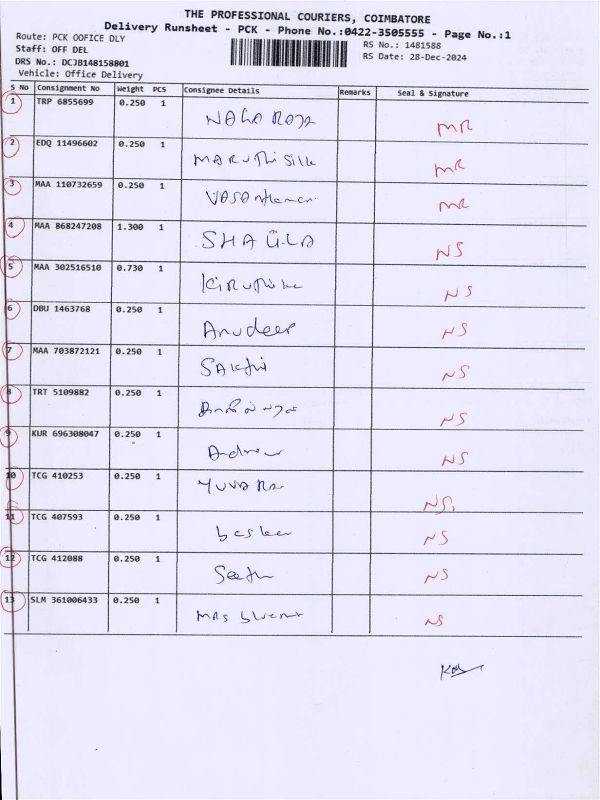 THE PROFESSIONAL COURIERS, COIMBATORE
Delivery Runsheet - PCK - Phone No.:0422-3505555 - Page No.:1
Route: PCK OOFICE DLY
RS No.: 1481588
Staff: OFF DEL
RS Date: 28-Dec-2024
DRS No.: DCJB148158801
Vehicle: Office Delivery
S No Consignment No Weight PCS Consignee Details Remarks Seal & Signature
1 TRP 6855699 0.250 1 NAGA RAJA MR
2 EDQ 11496602 0.250 1 MARUTHI SILK MR
3 MAA 110732659 0.250 1 MR
4 MAA 868247208 1.300 1 NS
5 MAA 302516510 0.730 1 NS
6 DBU 1463768 0.250 1 Anudeep NS
7 MAA 703872121 0.250 1 SAKthi NS
8 TRT 5109882 0.250 1 NS
9 KUR 696308047 0.250 1 Andrew NS
10 TCG 410253 0.250 1 NS
11 TCG 407593 0.250 1 NS
12 TCG 412088 0.250 1 NS
13 SLM 361006433 0.250 1 NS